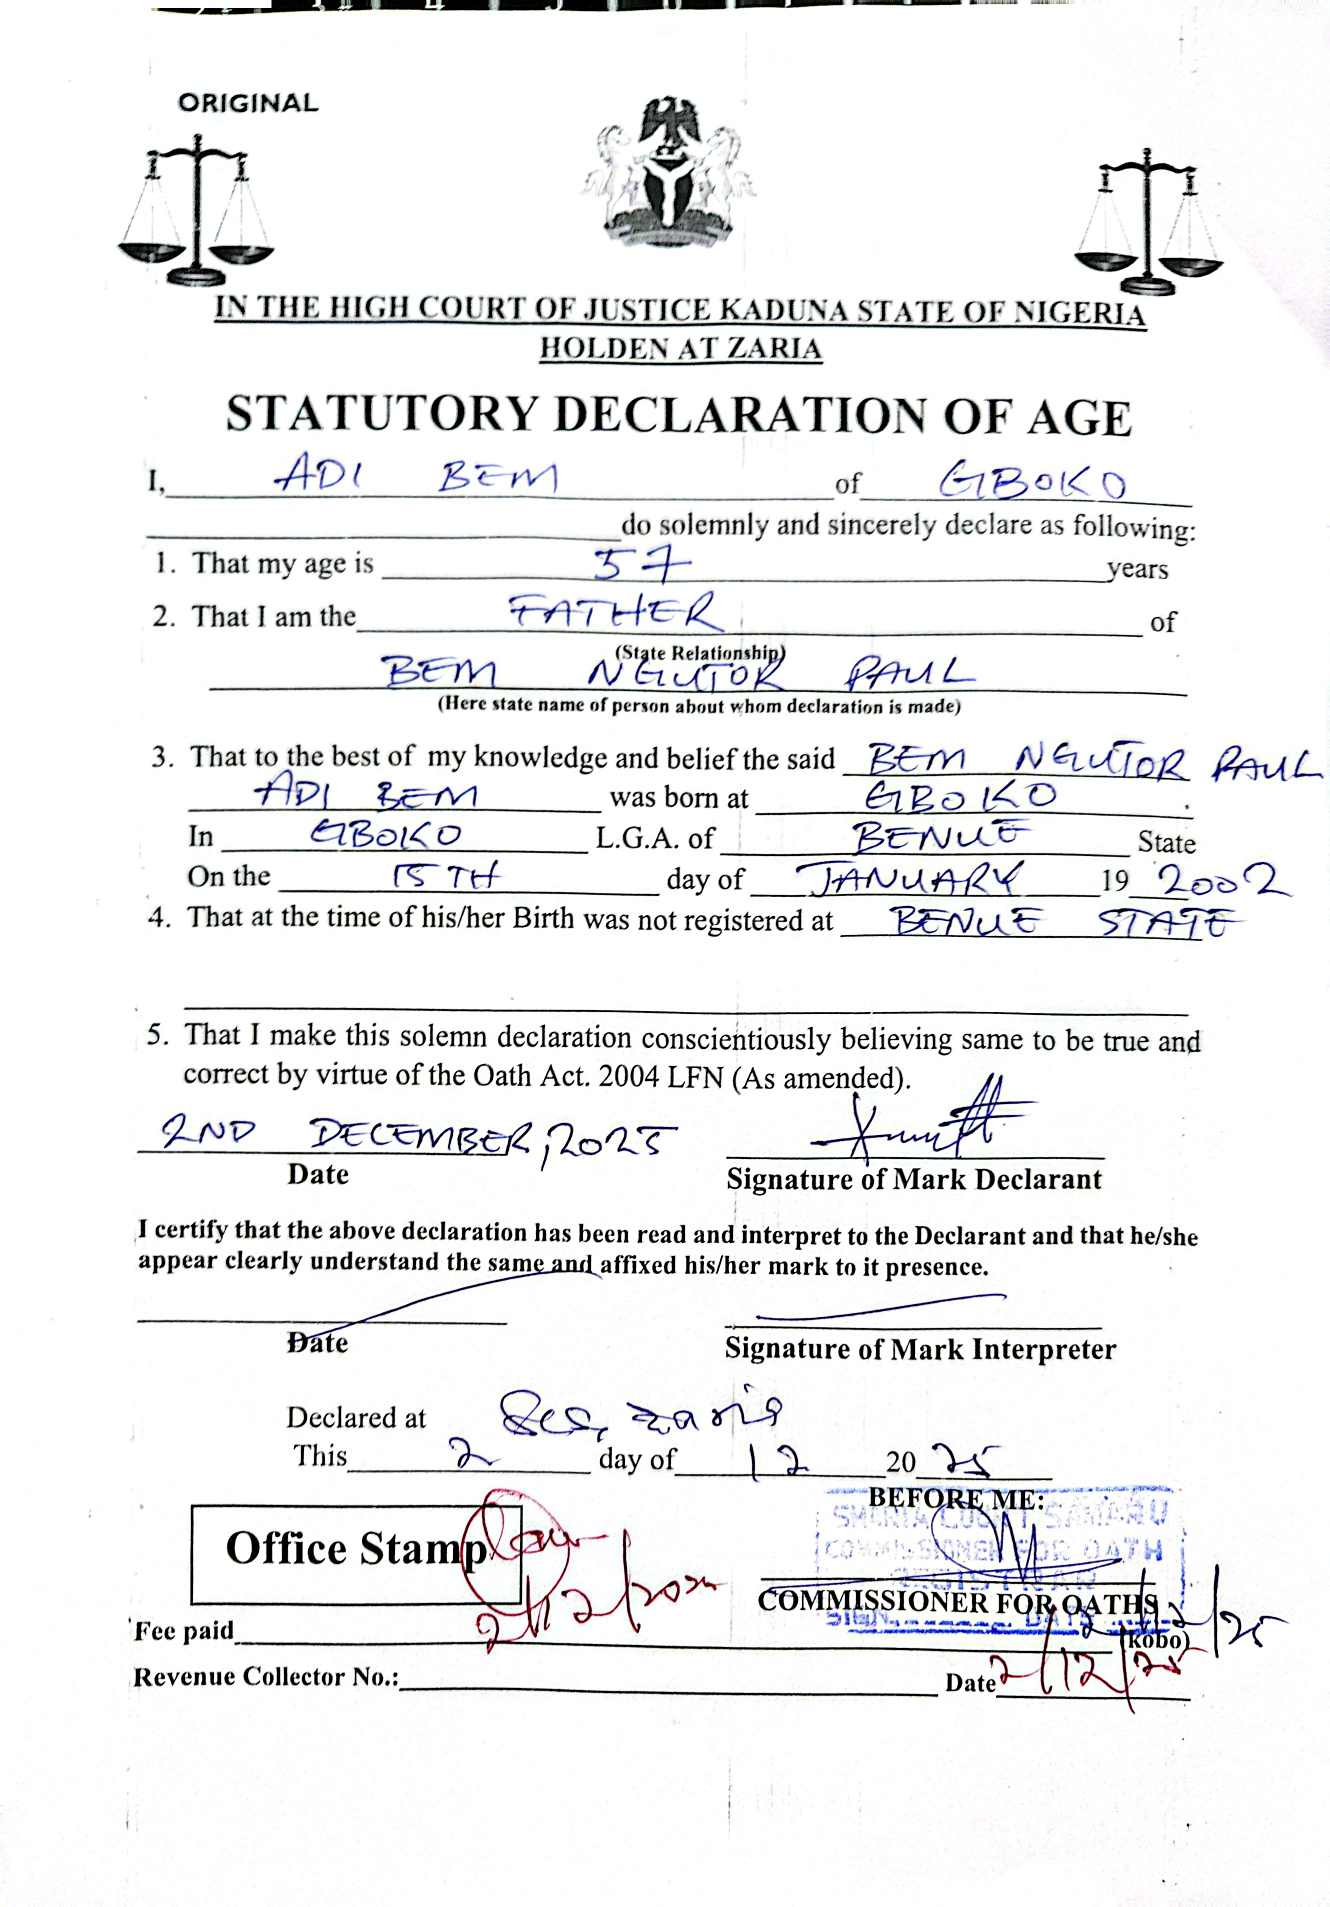 ORIGINAL
IN THE HIGH COURT OF JUSTICE KADUNA STATE OF NIGERIA
HOLDEN AT ZARIA
STATUTORY DECLARATION OF AGE
I, ADI BEM of GBOKO
do solemnly and sincerely declare as following:
1. That my age is 57 years
2. That I am the FATHER of
(State Relationship)
BEM NGUTOR PAUL
(Here state name of person about whom declaration is made)
3. That to the best of my knowledge and belief the said BEM NGUTOR PAUL
ADI BEM was born at GBOKO
In GBOKO L.G.A. of BENUE State
On the 15TH day of JANUARY 19 2002
4. That at the time of his/her Birth was not registered at BENUE STATE
5. That I make this solemn declaration conscientiously believing same to be true and
correct by virtue of the Oath Act. 2004 LFN (As amended).
2ND DECEMBER, 2025
Date Signature of Mark Declarant
I certify that the above declaration has been read and interpret to the Declarant and that he/she
appear clearly understand the same and affixed his/her mark to it presence.
Date Signature of Mark Interpreter
Declared at Zaria
This 2 day of 12 20 25
BEFORE ME:
COMMISSIONER FOR OATH
Office Stamp
COMMISSIONER FOR OATHS
SIGN DATE 2/12/25
Fee paid (kobo)
Revenue Collector No.: Date 2/12/25